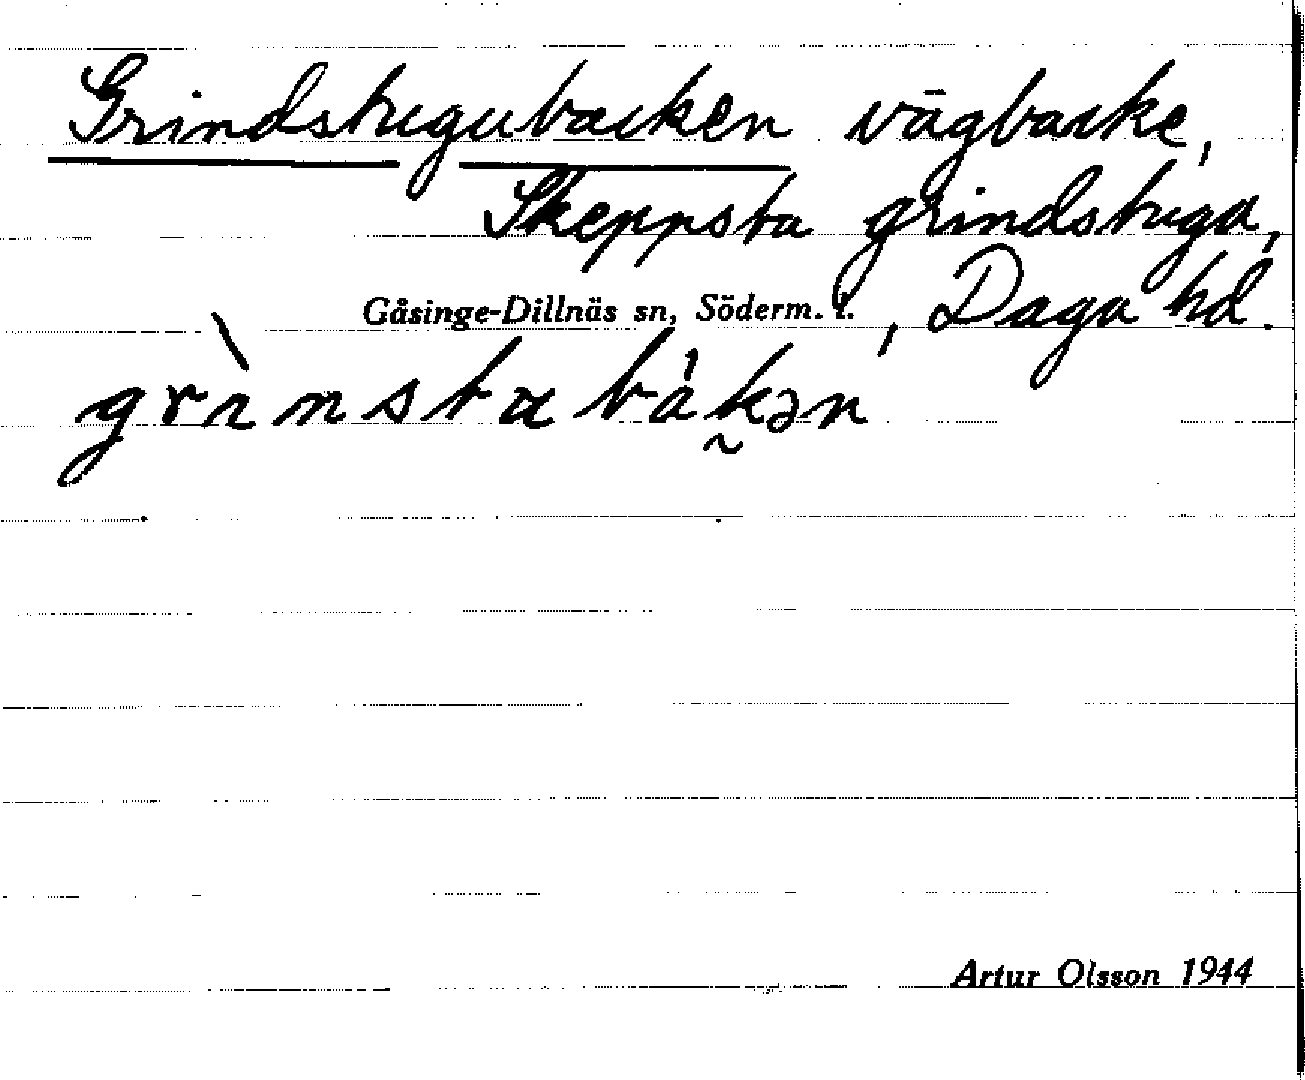 Grindstugubacken vägbacke,
Skeppsta grindstuga,
Gåsinge-Dillnäs sn, Söderm. l., Daga hd.
grìnsta bákən
Artur Olsson 1944